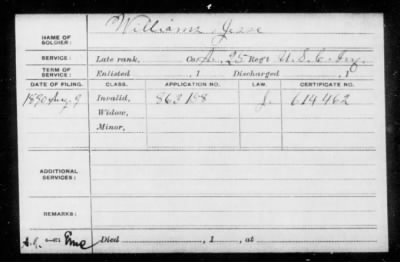 NAME OF SOLDIER: Williams, Jesse
SERVICE: Late rank, Co. A, 25 Reg't U.S.C. Inf.
TERM OF SERVICE: Enlisted , 1 Discharged , 1
DATE OF FILING. CLASS. APPLICATION NO. LAW. CERTIFICATE NO.
1890 Aug. 9 Invalid, 863188 J. 614462
Widow,
Minor,
ADDITIONAL SERVICES:
REMARKS:
Died , 1 , at